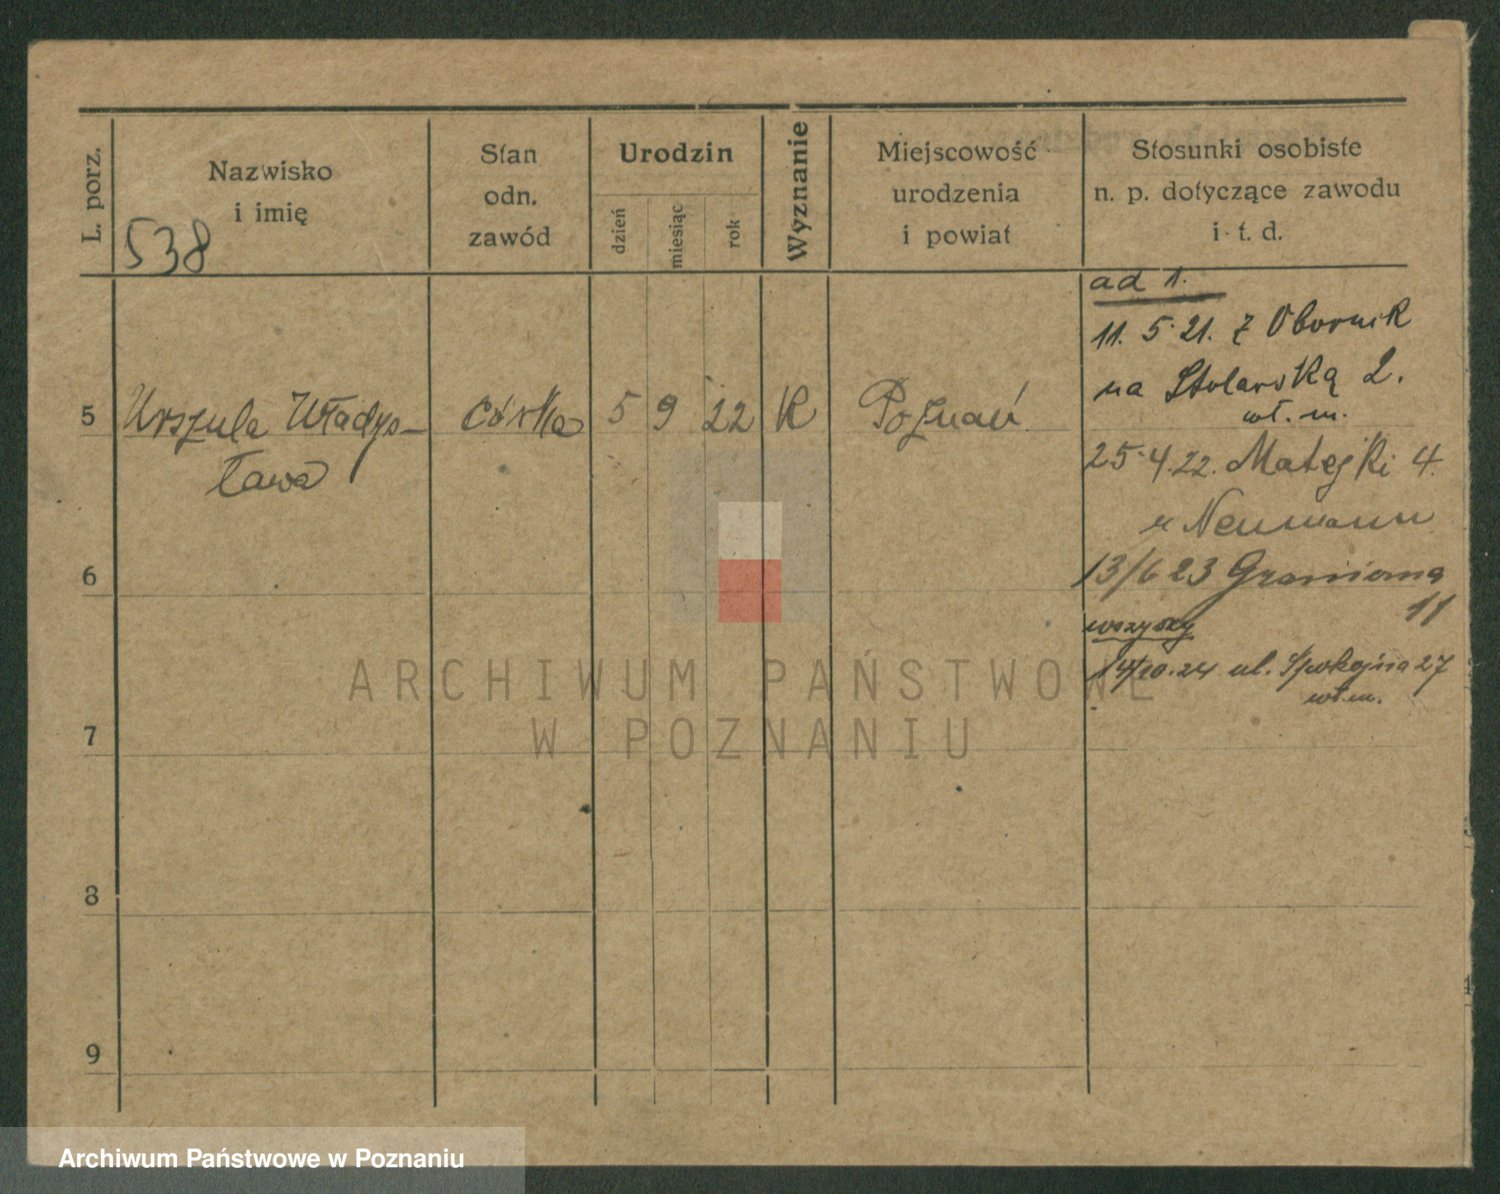 L. porz.
Nazwisko
i imię
538
Stan
odn.
zawód
Urodzin
dzień
miesiąc
rok
Wyznanie
Miejscowość
urodzenia
i powiat
Stosunki osobiste
n. p. dotyczące zawodu
i t. d.
ad 1.
11. 5. 21. z Obornik
na Stolarską 2.
wł. m.
5 Urszula Władys-
ława
córka 5 9 22 K Poznań
25.4.22. Matejki 4.
u Neumann
6
13/6 23 Graniczna
11
wszyscy
14/10.24 ul. Spokojna 27
wł. m.
7
8
9
ARCHIWUM PAŃSTWOWE
W POZNANIU
Archiwum Państwowe w Poznaniu